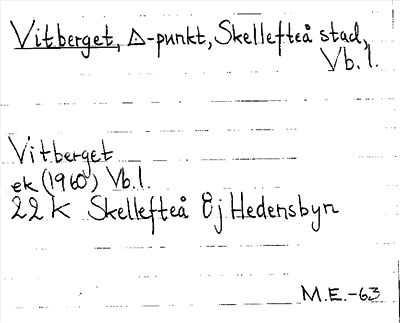 Vitberget, Δ-punkt, Skellefteå stad,
Vb. l.
Vitberget
ek (1960) Vb. l.
22 K Skellefteå 8j Hedensbyn
M.E.-63